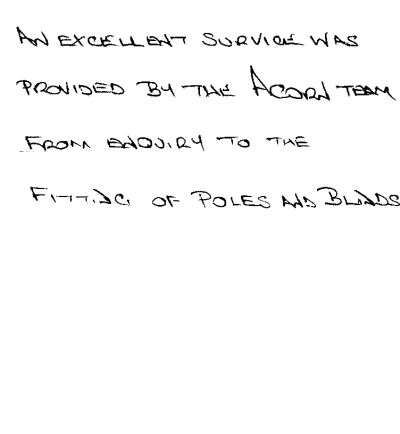 AN EXCELLENT SERVICE WAS
PROVIDED BY THE ACORN TEAM
FROM ENQUIRY TO THE
FITTING OF POLES AND BLINDS